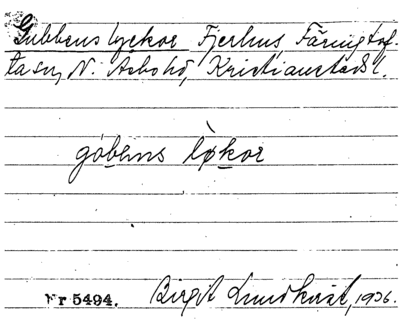 Gubbens lyckor Fjerhus, Färingtof-
tasn, N. Åsbo hd, Kristianstads l.
góbens lø̀kor
Nr 5494. Birgit Lundkvist, 1936.